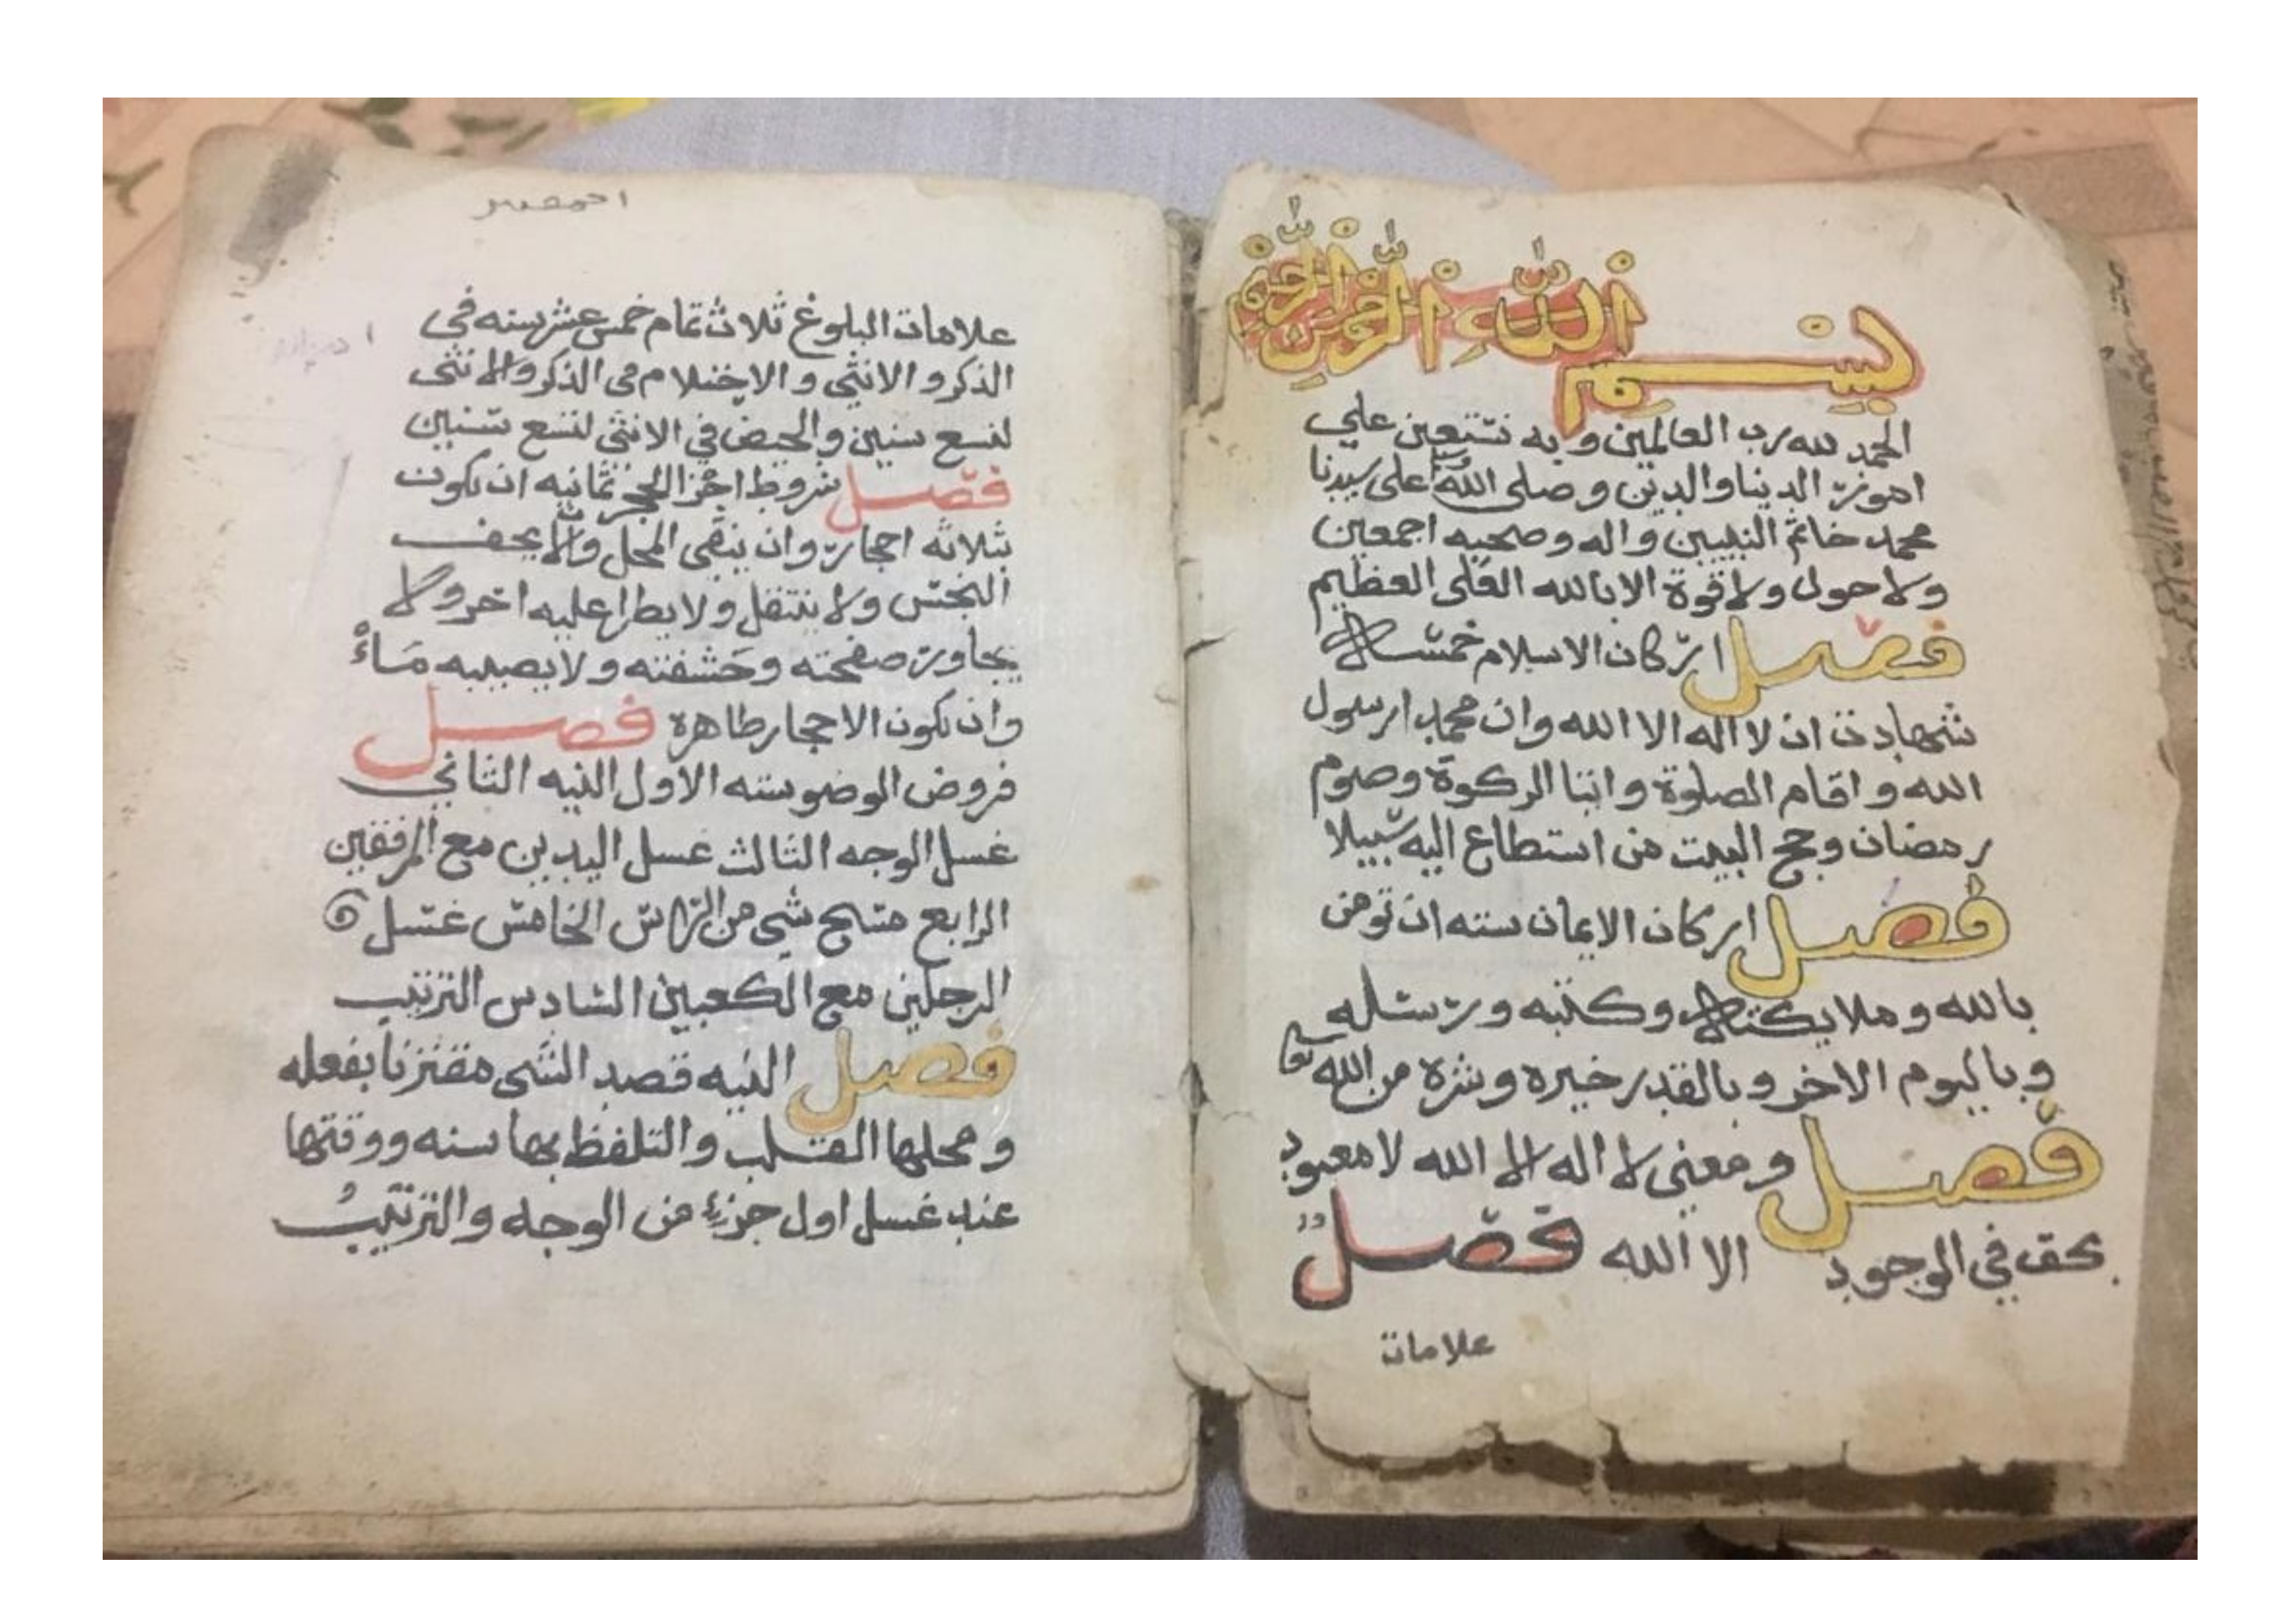 بِسْمِ اللّٰهِ الرَّحْمٰنِ الرَّحِيْمِ
الحمد لله رب العالمين و به نستعين علي
امور الدينا والدين و صلى اللّه على سيدنا
محمد خاتم النبيين و اله و صحبه اجمعين
ولا حول ولا قوة الا بالله العلى العظيم
فصل اركان الاسلام خمسه
شهادت ان لا اله الا الله وان محمد ارسول
الله و اقام الصلوة و ايتا الزكوة و صوم
رمضان و حج البيت من استطاع اليه سبيلا
فصل اركان الايمان سته ان تومن
بالله و ملايكته و كتبه و رسله
و باليوم الاخر و بالقدر خيره و شره من الله تعا
فصل و معنى لا اله الا الله لا معبود
بحق في الوجود الا الله فصل
علامات
علامات البلوغ ثلاث تمام خمس عشر سنه في
الذكر و الانثي و الاحتلام في الذكر والانثى
لتسع سنين و الحيض في الانثى لتسع سنين
فصل شروط اجز الحجر ثمانيه ان يكون
بثلاثه احجار و ان ينقى المحل و الا يجف
النجس و لا ينتقل و لا يطرا عليه اخر و لا
يجاوز صفحته و حَشفته و لا يصيبه مَاءْ
وان يكون الاحجار طاهرة فصل
فروض الوضو سته الاول النيه الثاني
غسل الوجه الثالث غسل اليدين مع المرفقين
الرابع مسح شي من الراس الخامس غسل
الرجلين مع الكعبين السادس الترتيب
فصل النيه قصد الشى مقترنا بفعله
و محلها القلب و التلفظ بها سنه و وقتها
عند غسل اول جزء من الوجه و الترتيبُ